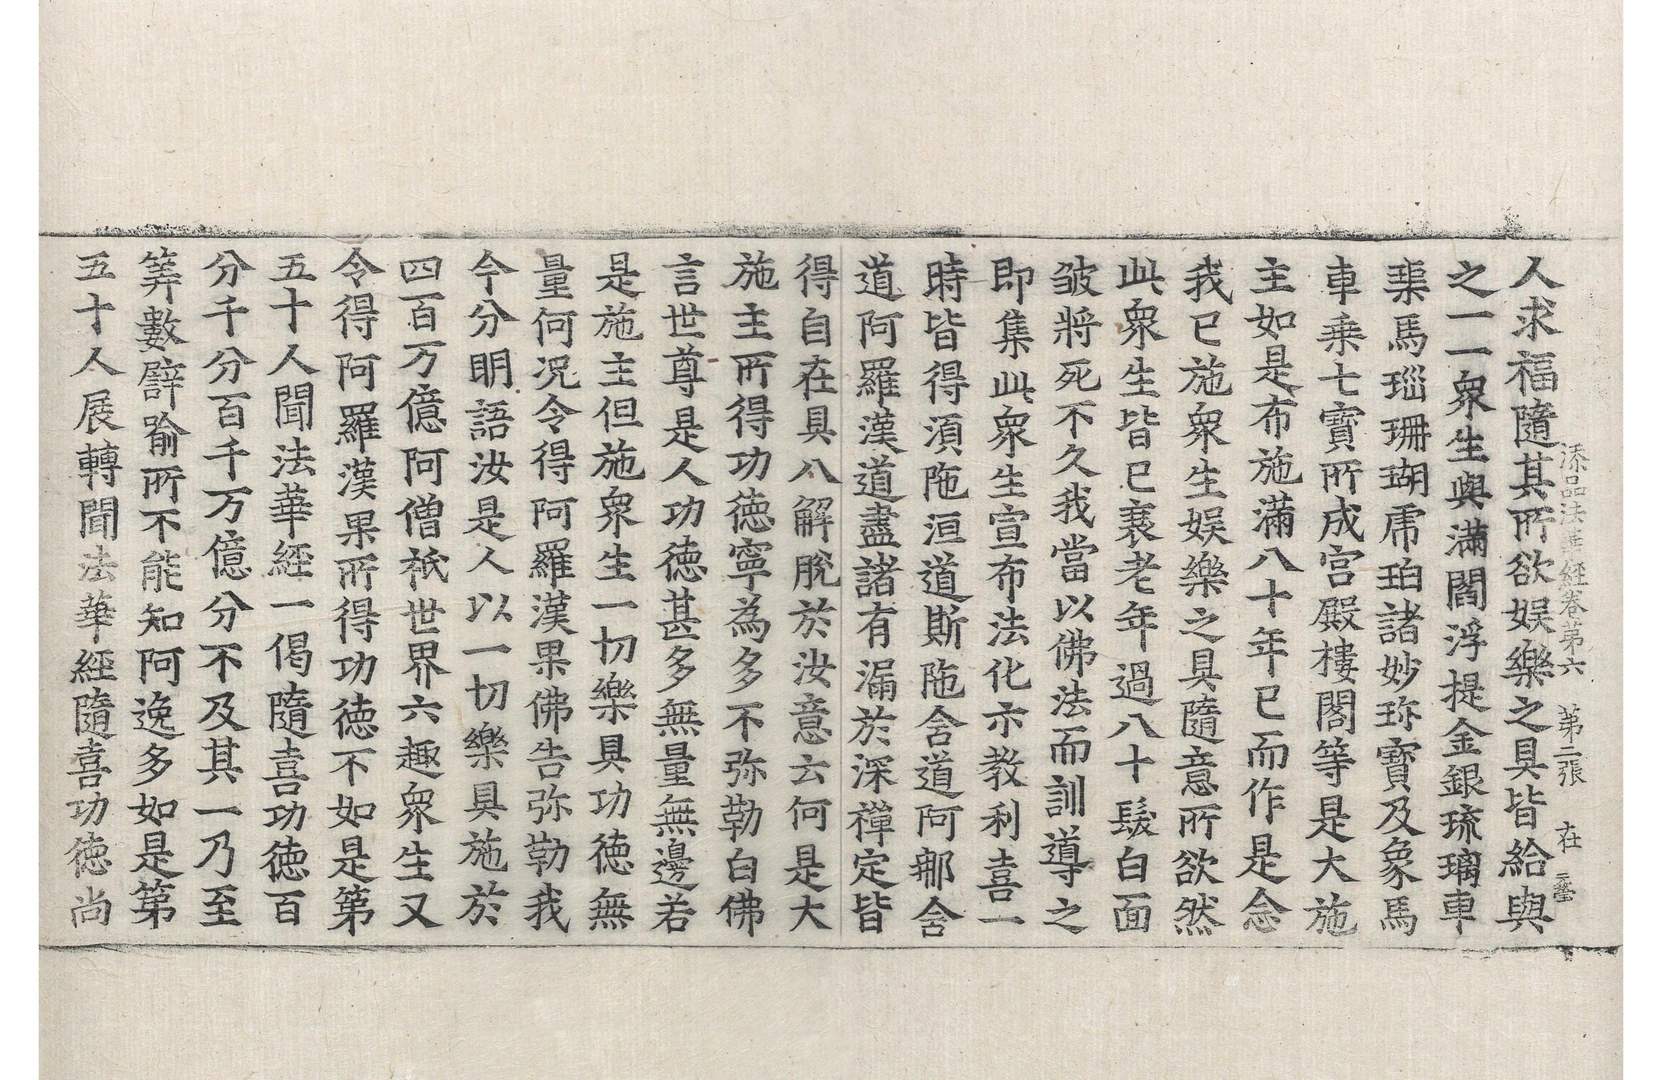 添品法華經卷第六　第二張　在
人求福隨其所欲娛樂之具皆給與
之一一衆生與滿閻浮提金銀琉璃車
璖馬瑙珊瑚虎珀諸妙珎寶及象馬
車乗七寶所成宫殿樓閣等是大施
主如是布施滿八十年已而作是念
我已施衆生娱樂之具隨意所欲然
此衆生皆已衰老年過八十髮白面
皱將死不久我當以佛法而訓導之
即集此衆生宣布法化示教利喜一
時皆得湏陁洹道斯陁含道阿那含
道阿羅漢道盡諸有漏於深禪定皆
得自在具八解脫於汝意云何是大
施主所得功徳寧為多不弥勒白佛
言世尊是人功徳甚多無量無邊若
是施主但施衆生一切樂具功徳無
量何况令得阿羅漢果佛告弥勒我
今分明語汝是人以一切樂具施於
四百万億阿僧祇世界六趣衆生又
令得阿羅漢果所得功徳不如是第
五十人聞法華經一偈隨喜功徳百
分千分百千万億分不及其一乃至
筭數譬喻所不能知阿逸多如是第
五十人展轉聞法華經隨喜功徳尚